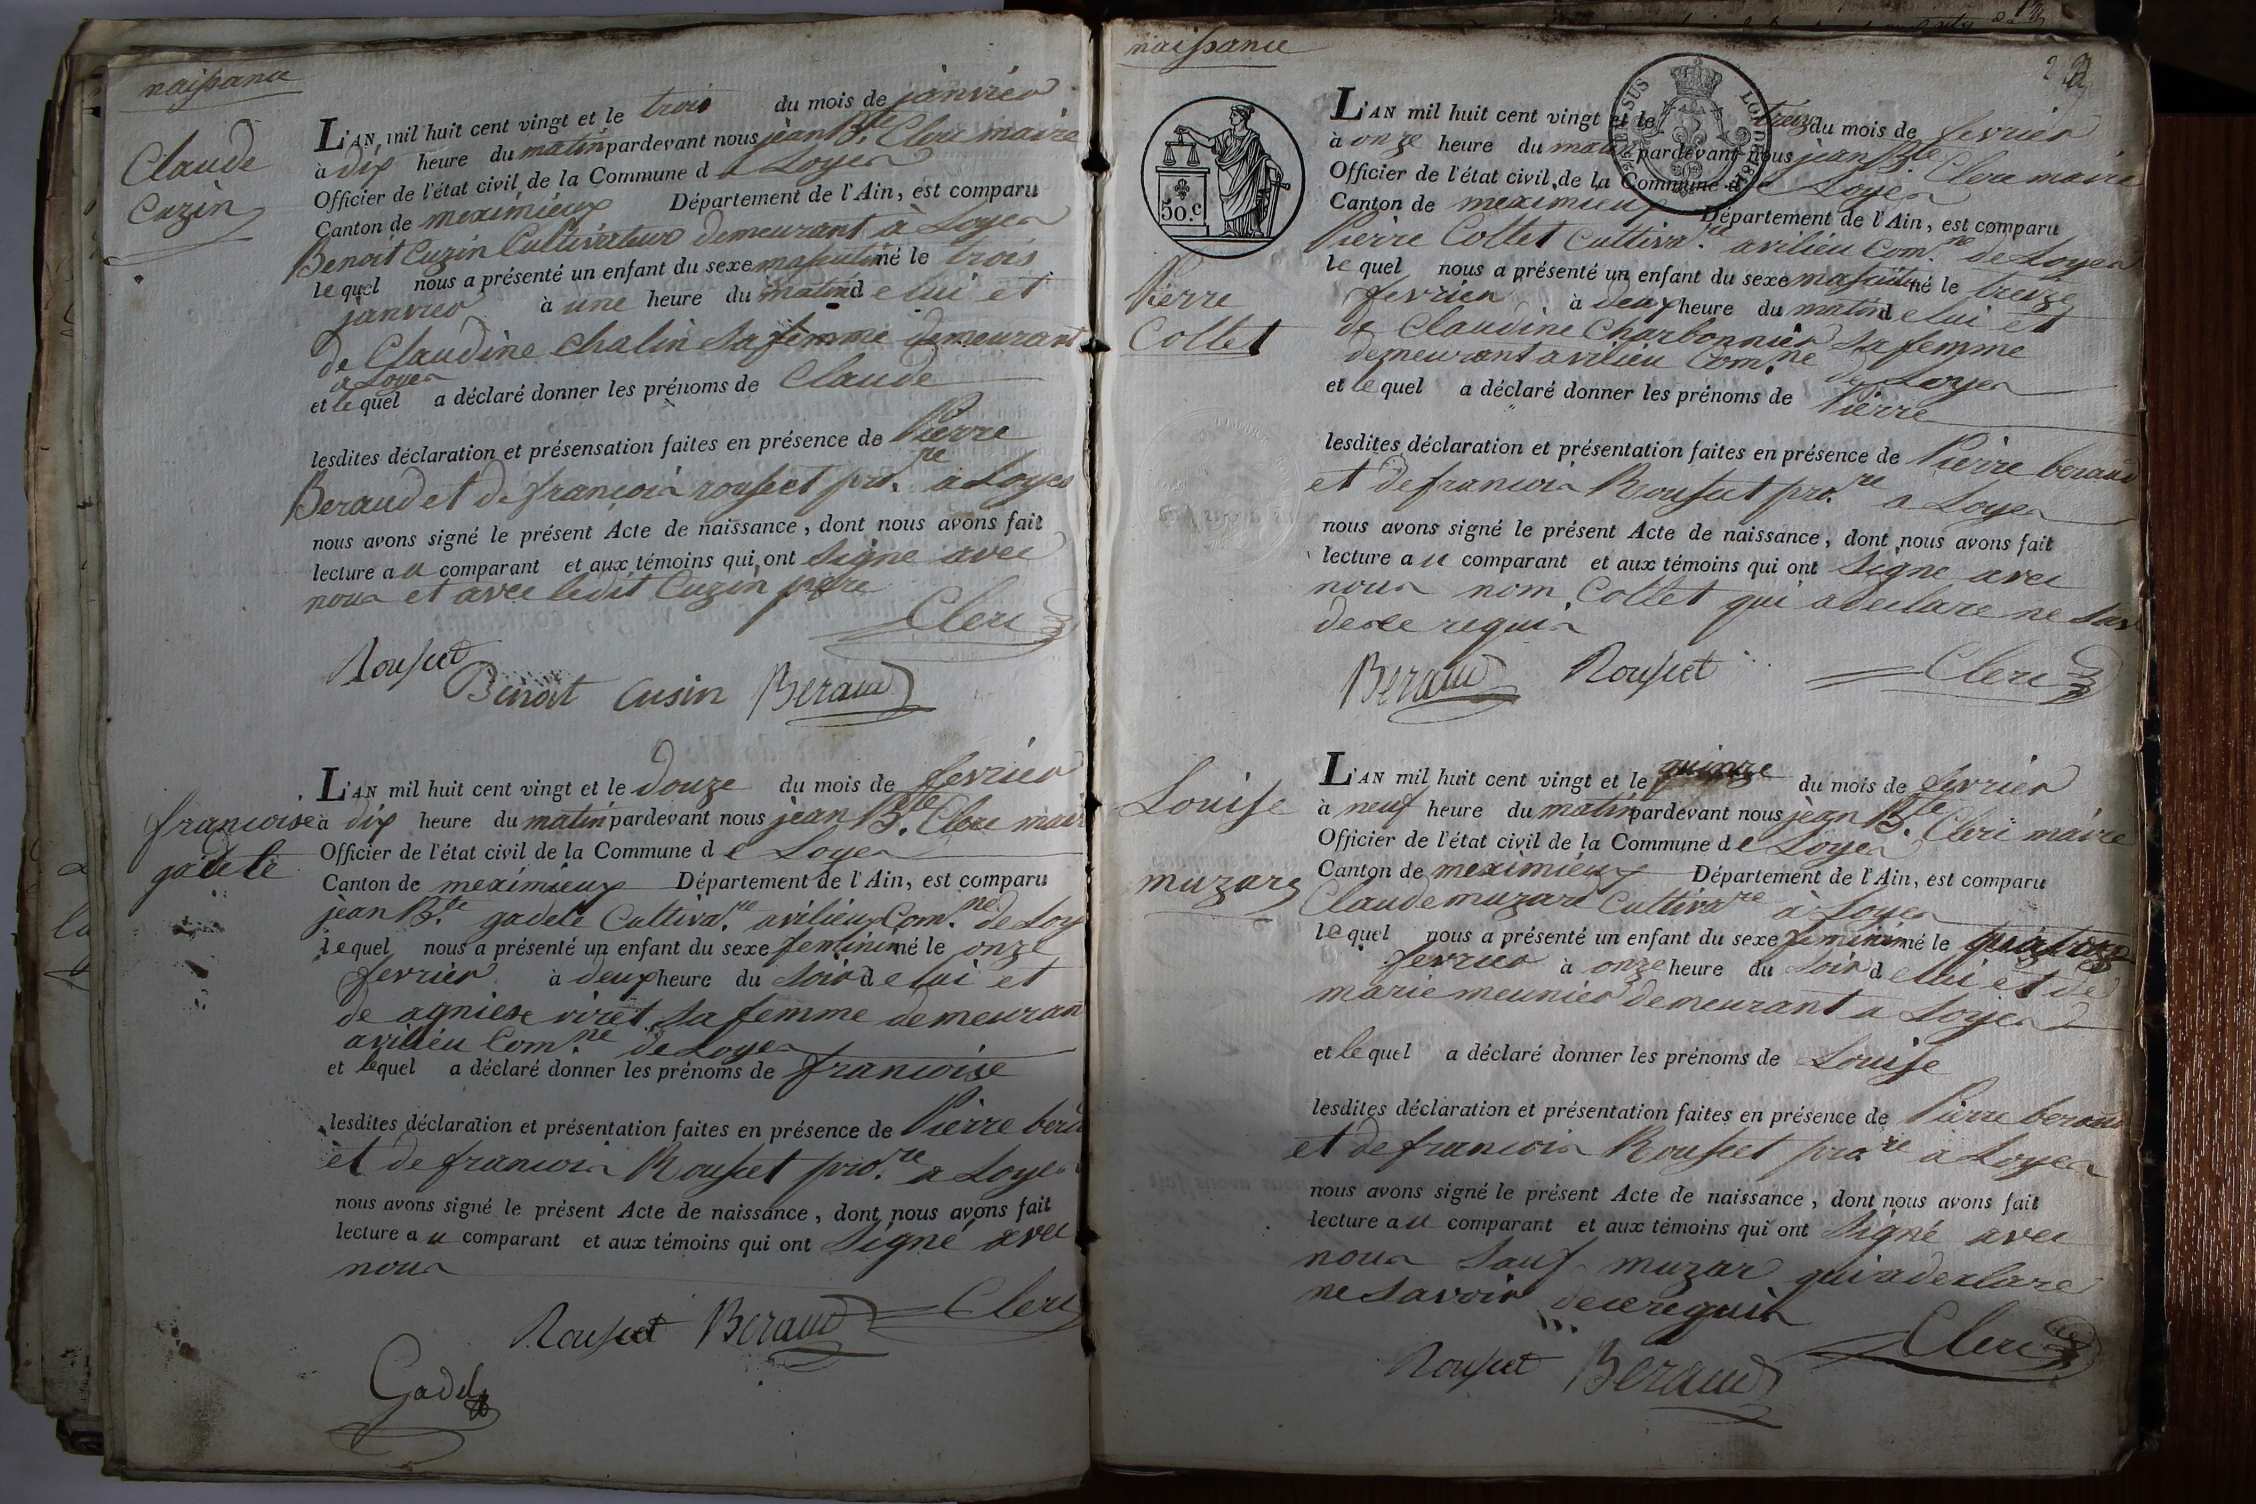 naissance
Claude
Cuzin
L'AN mil huit cent vingt et le trois du mois de janvier
à dix heure du matin pardevant nous jean Bte. Clerc maire
Officier de l'état civil de la Commune de Loyes
Canton de meximieux Département de l'Ain, est comparu
Benoit Cuzin Cultivateur demeurant à Loyes
lequel nous a présenté un enfant du sexe masculin né le trois
janvier à une heure du matin de lui et
de Claudine Chalin sa femme demeurant
a Loyes
et lequel a déclaré donner les prénoms de Claude
lesdites déclaration et présensation faites en présence de Pierre
Beraud et de françois rousset pro.re a Loyes
nous avons signé le présent Acte de naissance, dont nous avons fait
lecture au comparant et aux témoins qui ont signe avec
nous et avec ledit Cuzin père
Clerc
Rousset
Benoit Cusin Beraud
françoise
gadele
L'AN mil huit cent vingt et le douze du mois de fevrier
à dix heure du matin pardevant nous jean Bte. Clerc maire
Officier de l'état civil de la Commune de Loyes
Canton de meximieux Département de l'Ain, est comparu
jean Bte. gadele Cultiva.re a vilieu Com.ne de Loy
lequel nous a présenté un enfant du sexe feminin né le onze
fevrier à deux heure du soir de lui et
de agniese viret sa femme demeuran
a vilieu Com.ne de Loyes
et lequel a déclaré donner les prénoms de francoise
lesdites déclaration et présentation faites en présence de Pierre berau
et de francois Rousset pro.re a Loyes
nous avons signé le présent Acte de naissance, dont nous avons fait
lecture au comparant et aux témoins qui ont signé avec
nous
Rousset Beraud Clerc
Gadel
naissance
2
50.c
LOI DE 1816
Pierre
Collet
L'AN mil huit cent vingt et le treize du mois de fevrier
à onze heure du matin pardevant nous jean Bte. Clerc maire
Officier de l'état civil de la Commune de Loyes
Canton de meximieux Département de l'Ain, est comparu
Pierre Collet Cultiva.re a vilieu Com.ne de Loyes
lequel nous a présenté un enfant du sexe masculin né le treize
fevrier à deux heure du matin de lui et
de Claudine Charbonnier sa femme
demeurant a vilieu Com.ne de Loyes
et lequel a déclaré donner les prénoms de Pierre
lesdites déclaration et présentation faites en présence de Pierre beraud
et de francois Rousset pro.re a Loyes
nous avons signé le présent Acte de naissance, dont nous avons fait
lecture au comparant et aux témoins qui ont signe avec
nous nom Collet qui a declare ne sav
de ce requis
Beraud Rousset Clerc
Louise
muzard
L'AN mil huit cent vingt et le quinze du mois de fevrier
à neuf heure du matin pardevant nous jean Bte. Clerc maire
Officier de l'état civil de la Commune de Loyes
Canton de meximieux Département de l'Ain, est comparu
Claude muzard Cultivare à Loyes
lequel nous a présenté un enfant du sexe feminin né le quatorze
fevrier à onze heure du soir de lui et de
marie meunier demeurant a Loyes
et lequel a déclaré donner les prénoms de Louise
lesdites déclaration et présentation faites en présence de Pierre beraud
et de francois Rousset pro.re a Loyes
nous avons signé le présent Acte de naissance, dont nous avons fait
lecture au comparant et aux témoins qui ont signé avec
nous sauf muzar qui a declare
ne savoir de ce requis
Clerc
Rousset Beraud